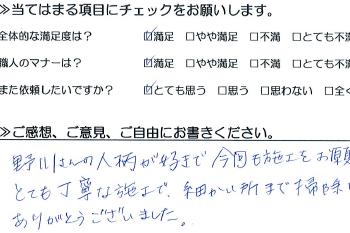 ≫当てはまる項目にチェックをお願いします。
全体的な満足度は? ☑満足 □やや満足 □不満 □とても不満
職人のマナーは? ☑満足 □やや満足 □不満 □とても不満
また依頼したいですか? ☑とても思う □思う □思わない □全く
≫ご感想、ご意見、ご自由にお書きください。
野川さんの人柄が好きで今回も施工をお願
とても丁寧な施工で、細かい所まで掃除
ありがとうございました。